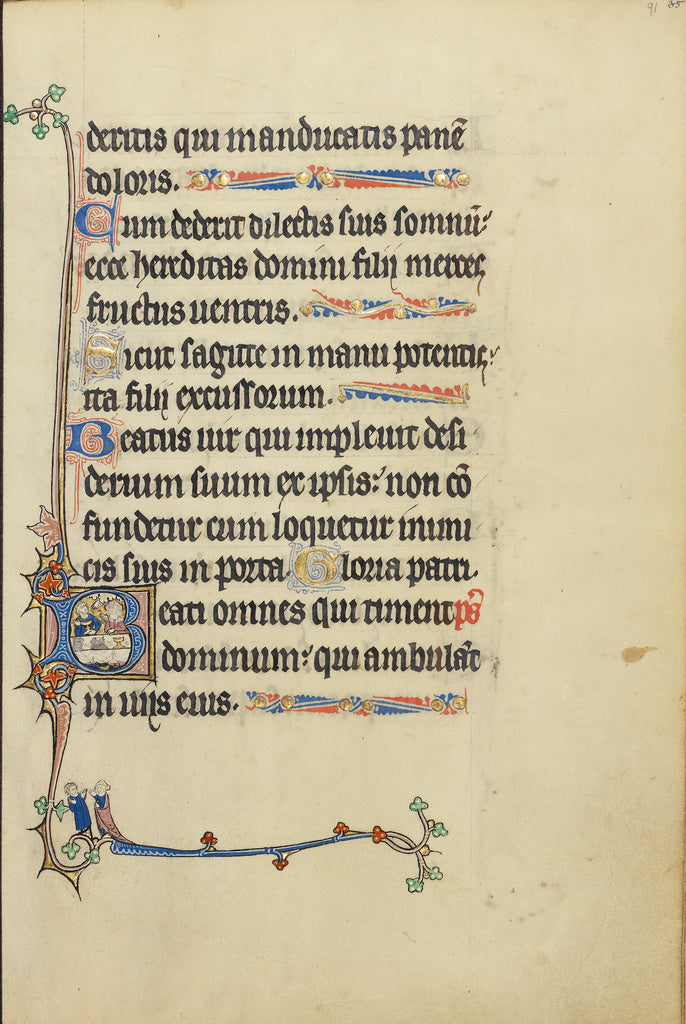 91 35
deritis qui manducatis panē
doloris.
Cum dederit dilectis suis somnū:
ecce hereditas domini filij merces
fructus uentris.
Sicut sagitte in manu potentis:
ita filij excussorum.
Beatus uir qui impleuit desi
derium suum ex ipsis: non cō
fundetur cum loquetur inimi
cis suis in porta. Gloria patri.
Beati omnes qui timent pˢ
dominum: qui ambulāt
in uijs eius.